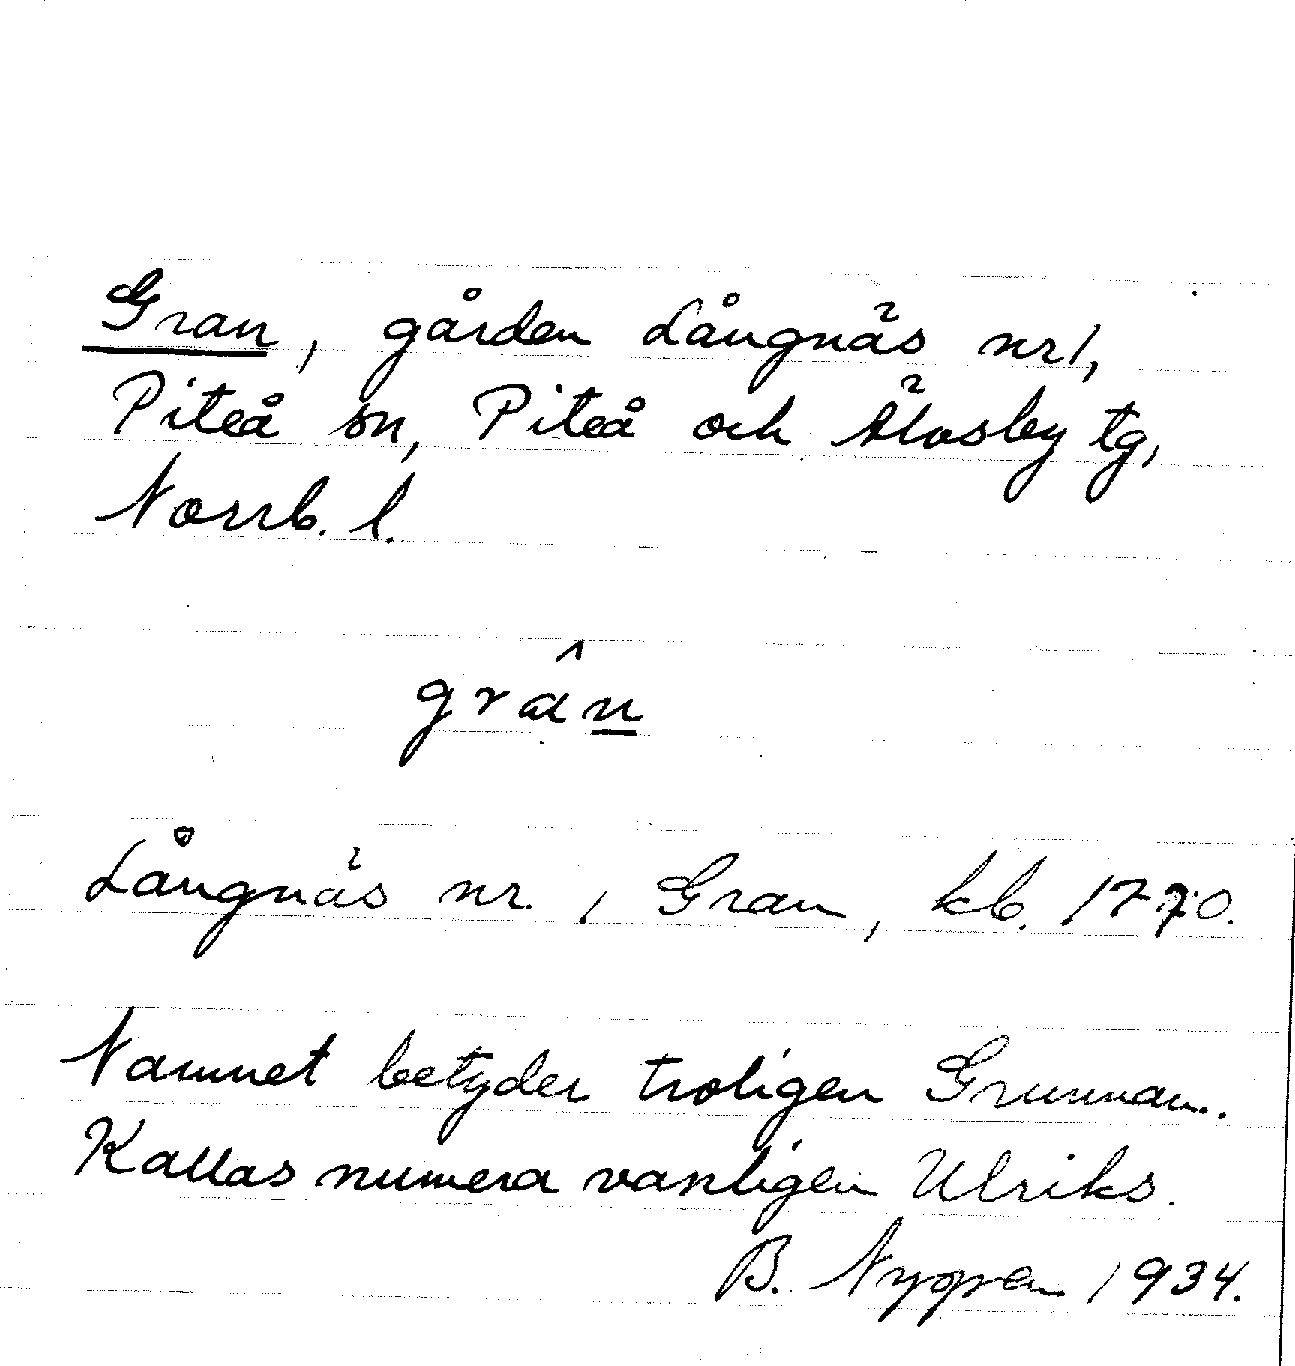 Gran, gården Långnäs nr 1,
Piteå sn, Piteå och Älvsby tg,
Norrb. l.
grân
Långnäs nr 1 Gran, kb. 1770.
Namnet betyder troligen Grunnan.
Kallas numera vanligen Ulriks.
B. Nygren 1934.